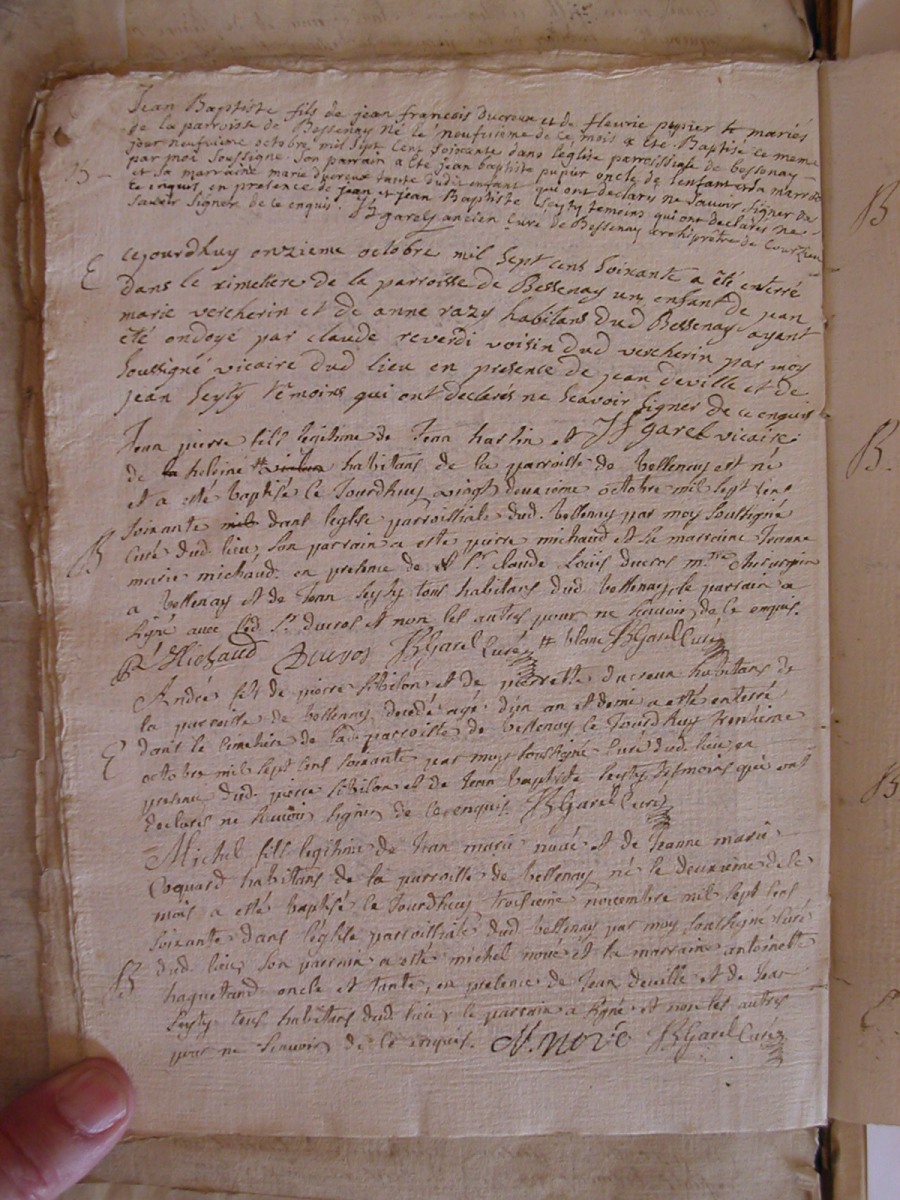 Jean Baptiste fils de jean francois Ducreux et de fleurie pupier mariés
de la parroisse de Bessenay né le neufvieme de ce mois a Eté Baptisé ce meme
jour neufvieme octobre mil sept cent soixante dans leglise parroissiale de bessenay
par moi soussigné. Son parrain a Eté jean baptiste pupier oncle de lenfant
B et sa marraine marie ducreux tante dudit enfant qui ont declarés ne scavoir signer de
ce enquis, en presence de jean et jean Baptiste Seyty temoins qui ont declarés ne
scavoir signer de ce enquis. JJ garel ancien Curé de Bessenay archiprêtre de
cejourdhuy onzieme octobre mil sept cens soixante a été enterré
E dans le cimettere de la parroisse de Bessenay un enfant de jean
marie vercherin et de anne razy habitans dud Bessenay ayant
été ondoyé par claude reverdi voisin dud vercherin par moy
soussigné vicaire dud lieu en presence de jean deville et de
jean Seyty témoins qui ont declarés ne scavoir signer de ce enquis
JJ garel vicaire
Jean pierre fils legitime de Jean et
de habitans de la parroisse de bessenay est né
et a esté baptisé ce Jourdhuy vingt deuxieme octobre mil sept cens
soixante dans leglise parroissiale dud. bessenay par moy soussigné
B curé dud. lieu, son parrain a esté pierre michaud et sa marraine Jeanne
marie michaud. en presence de Sr. Claude Loüis ducros mtre chirurgien
a bessenay et de Jean Seyty tous habitans dud bessenay, le parrain a
signé avec led. Sr. ducros et non les autres pour ne scavoir de ce enquis.
P Michaud Ducros JJGarel Curé blanc JJGarel Curé
André fils de pierre sibilon et de pierrette ducreux habitans de
la parroisse de bessenay decedé agé d'un an et demi a esté enterré
E dans le cimetiere de la parroisse de bessenay ce Jourdhuy
octobre mil sept cens soixante par moy soussigné curé dud. lieu en
presence dud. pierre sibilon et de Jean baptiste Seyty temoins qui ont
declarés ne scavoir signer de ce enquis. JJGarel Curé
Michel fils legitime de Jean marie nové et de Jeanne marie
Coquard habittans de la parroisse de bessenay né le deuxieme de ce
mois a esté baptisé ce Jourdhuy troisieme novembre mil sept cens
soixante dans leglise parroissiale dud bessenay par moy soussigné curé
B dud. lieu, son parrain a esté michel nové et la marraine antoinette
haquetand oncle et tante, en presence de Jean deville et de Jean
Seyty tous habittans dud lieu, le parrain a signé et non les autres
pour ne scavoir de ce enquis. M. nové JJGarel Curé
B
B.
B
E